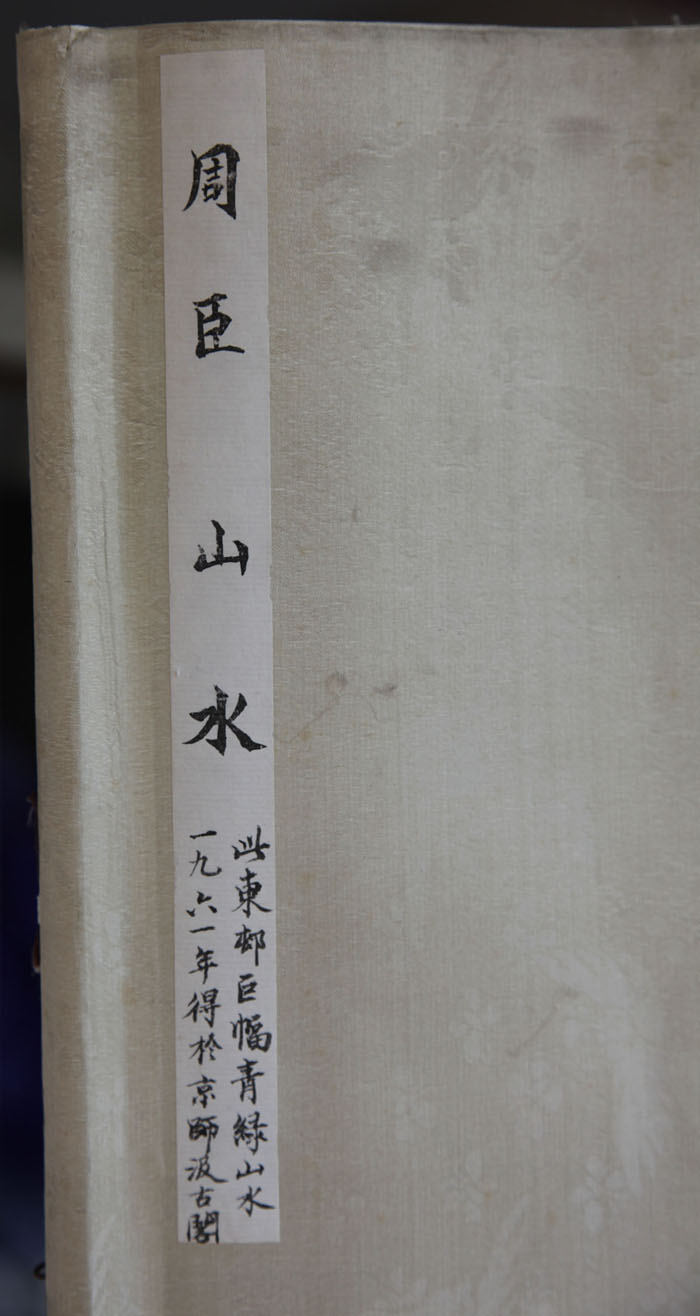 周臣山水
此東邨巨幅青緑山水
一九六一年得於京師汲古閣